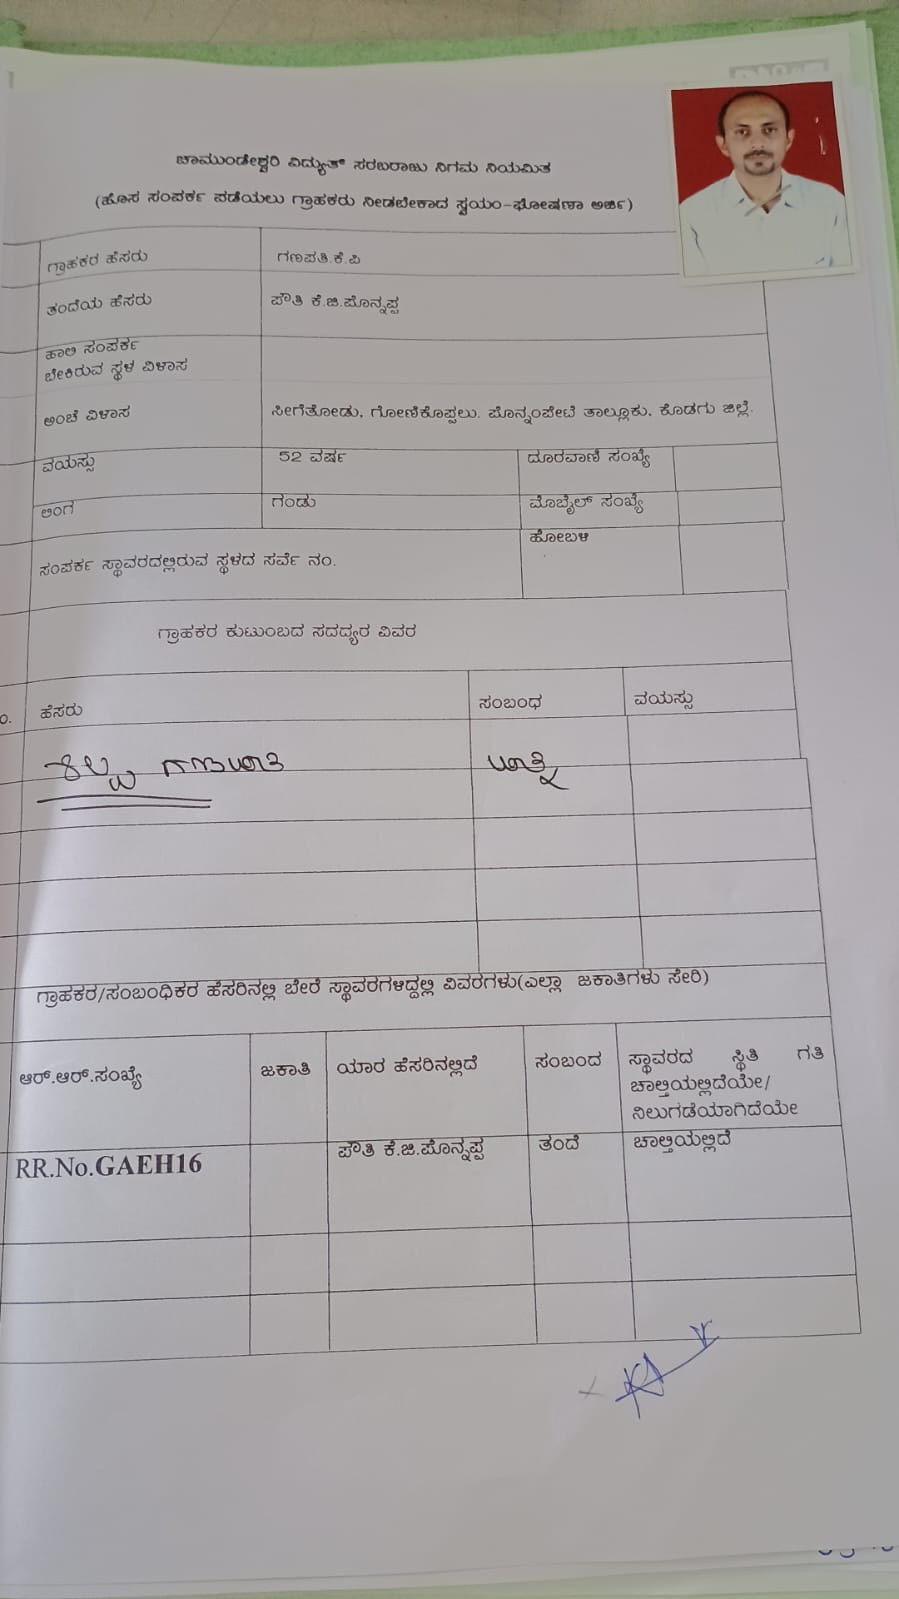 ಚಾಮುಂಡೇಶ್ವರಿ ವಿದ್ಯುತ್ ಸರಬರಾಜು ನಿಗಮ ನಿಯಮಿತ
(ಹೊಸ ಸಂಪರ್ಕ ಪಡೆಯಲು ಗ್ರಾಹಕರು ನೀಡಬೇಕಾದ ಸ್ವಯಂ-ಘೋಷಣಾ ಅರ್ಜಿ)
ಗ್ರಾಹಕರ ಹೆಸರು ಗಣಪತಿ.ಕೆ.ಪಿ
ತಂದೆಯ ಹೆಸರು ಪೌತಿ ಕೆ.ಜಿ.ಪೊನ್ನಪ್ಪ
ಹಾಲಿ ಸಂಪರ್ಕ
ಬೇಕಿರುವ ಸ್ಥಳ ವಿಳಾಸ
ಅಂಚೆ ವಿಳಾಸ ಸೀಗೆತೋಡು, ಗೋಣಿಕೊಪ್ಪಲು. ಪೊನ್ನಂಪೇಟೆ ತಾಲ್ಲೂಕು, ಕೊಡಗು ಜಿಲ್ಲೆ.
ವಯಸ್ಸು 52 ವರ್ಷ ದೂರವಾಣಿ ಸಂಖ್ಯೆ
ಲಿಂಗ ಗಂಡು ಮೊಬೈಲ್ ಸಂಖ್ಯೆ
ಸಂಪರ್ಕ ಸ್ಥಾವರದಲ್ಲಿರುವ ಸ್ಥಳದ ಸರ್ವೆ ನಂ. ಹೋಬಳಿ
ಗ್ರಾಹಕರ ಕುಟುಂಬದ ಸದದ್ಯರ ವಿವರ
ಹೆಸರು ಸಂಬಂಧ ವಯಸ್ಸು
ಗಣಪತಿ ಪತ್ನಿ
ಗ್ರಾಹಕರ/ಸಂಬಂಧಿಕರ ಹೆಸರಿನಲ್ಲಿ ಬೇರೆ ಸ್ಥಾವರಗಳಿದ್ದಲ್ಲಿ ವಿವರಗಳು(ಎಲ್ಲಾ ಜಕಾತಿಗಳು ಸೇರಿ)
ಆರ್.ಆರ್.ಸಂಖ್ಯೆ ಜಕಾತಿ ಯಾರ ಹೆಸರಿನಲ್ಲಿದೆ ಸಂಬಂದ ಸ್ಥಾವರದ ಸ್ಥಿತಿ ಗತಿ
ಚಾಲ್ತಿಯಲ್ಲಿದೆಯೇ/
ನಿಲುಗಡೆಯಾಗಿದೆಯೇ
RR.No.GAEH16 ಪೌತಿ ಕೆ.ಜಿ.ಪೊನ್ನಪ್ಪ ತಂದೆ ಚಾಲ್ತಿಯಲ್ಲಿದೆ